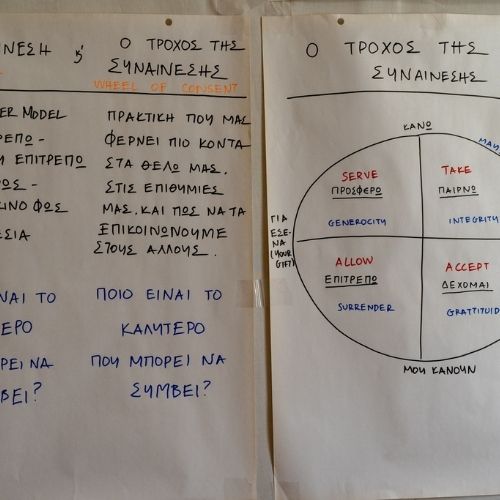 ΝΕΣΗ &
ER MODEL
ΕΠΩ -
Ν ΕΠΙΤΡΕΠΩ
ΟΣ -
ΙΝΟ ΦΩΣ
ΕΣΙΑ
ΙΝΑΙ ΤΟ
ΕΡΟ
ΡΕΙ ΝΑ
ΒΕΙ?
Ο ΤΡΟΧΟΣ ΤΗΣ
ΣΥΝΑΙΝΕΣΗΣ
WHEEL OF CONSENT
ΠΡΑΚΤΙΚΗ ΠΟΥ ΜΑΣ
ΦΕΡΝΕΙ ΠΙΟ ΚΟΝΤΑ
ΣΤΑ ΘΕΛΩ ΜΑΣ,
ΣΤΙΣ ΕΠΙΘΥΜΙΕΣ
ΜΑΣ, ΚΑΙ ΠΩΣ ΝΑ ΤΑ
ΕΠΙΚΟΙΝΩΝΟΥΜΕ
ΣΤΟΥΣ ΑΛΛΟΥΣ.
ΠΟΙΟ ΕΙΝΑΙ ΤΟ
ΚΑΛΥΤΕΡΟ
ΠΟΥ ΜΠΟΡΕΙ ΝΑ
ΣΥΜΒΕΙ?
Ο ΤΡΟΧΟΣ ΤΗΣ
ΣΥΝΑΙΝΕΣΗΣ
ΚΑΝΩ
SERVE
ΠΡΟΣΦΕΡΩ
GENEROCITY
TAKE
ΠΑΙΡΝΩ
INTEGRITY
ΓΙΑ
ΕΣΕ-
ΝΑ
(YOUR
GIFT)
ALLOW
ΕΠΙΤΡΕΠΩ
SURRENDER
ACCEPT
ΔΕΧΟΜΑΙ
GRATTITUID
ΜΟΥ ΚΑΝΟΥΝ